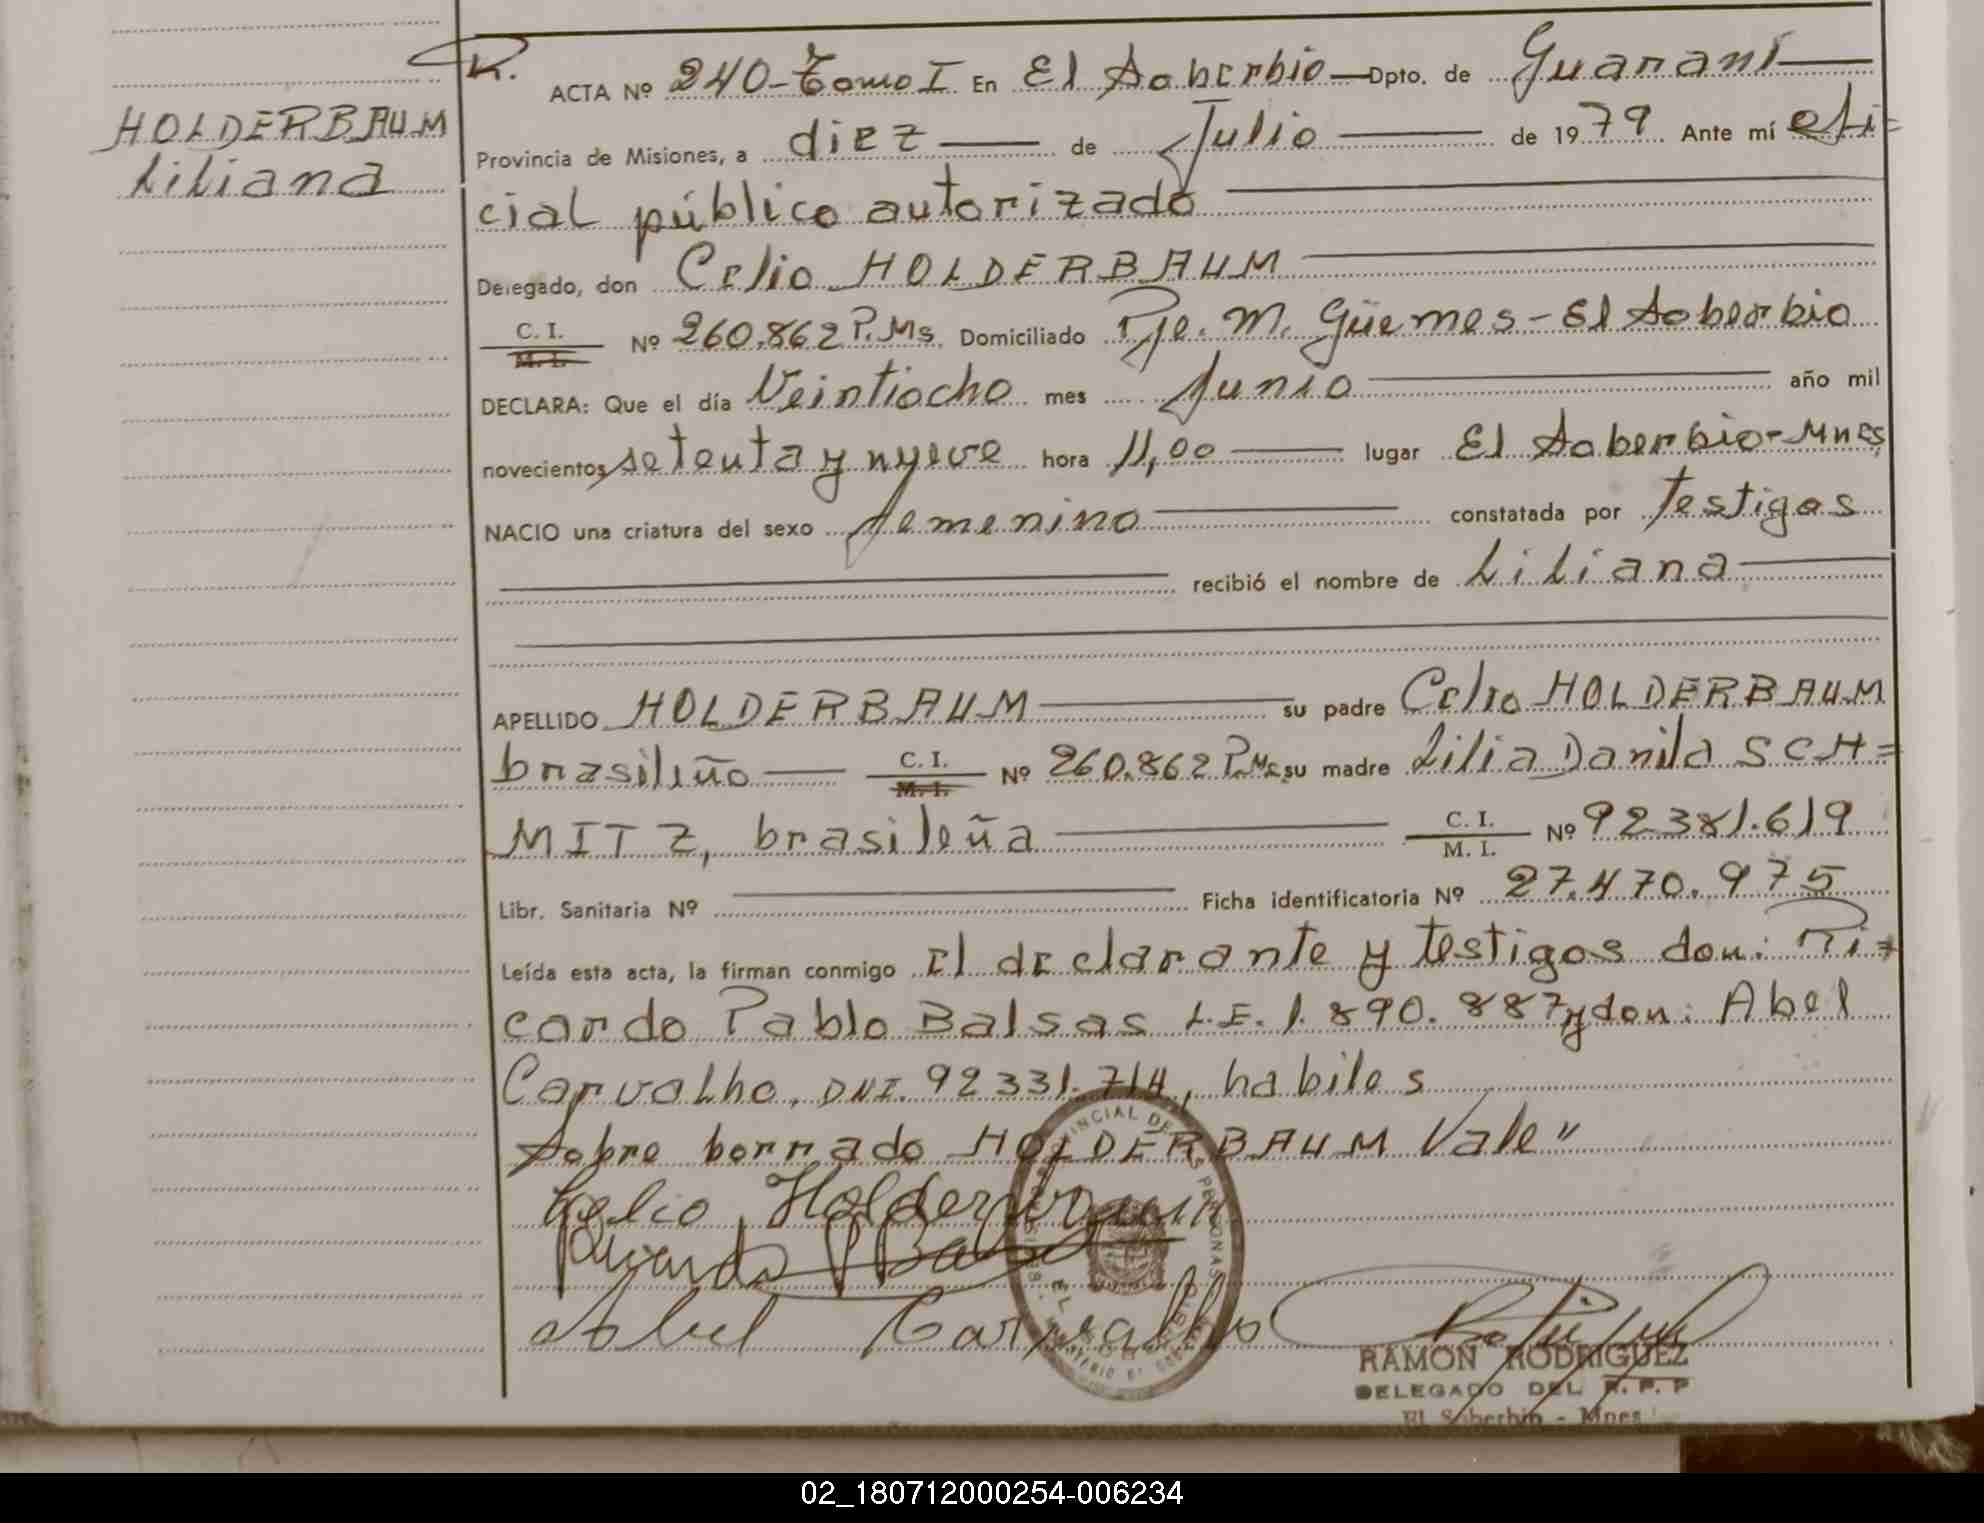 R.
HOLDERBAUM
Liliana
ACTA Nº 240-Tomo I En El Soberbio—Dpto. de Guaraní—
Provincia de Misiones, a diez — de Julio — de 1979 Ante mí ofi=
cial público autorizado
Delegado, don Celio HOLDERBAUM
C. I.
M. I.
Nº 260.862 P.Ms. Domiciliado Pje. M. Güemes - El Soberbio
DECLARA: Que el día Veintiocho mes Junio — año mil
novecientos setenta y nueve hora 11,00 — lugar El Soberbio-Mnes
NACIO una criatura del sexo femenino — constatada por testigos
— recibió el nombre de Liliana —
APELLIDO HOLDERBAUM — su padre Celio HOLDERBAUM
brasileño — C. I. M. I. Nº 260.862 P.Ms su madre Lilia Danila SCH=
MITZ, brasileña — C. I. M. I. Nº 92381.619
Libr. Sanitaria Nº — Ficha identificatoria Nº 27.470.975
Leída esta acta, la firman conmigo El declarante y testigos don: Ri=
cardo Pablo Balsas L.E. 1.890.887 y don: Abel
Carvalho, DNI. 92331.714, habiles
Sobre borrado HOLDERBAUM Vale"
Celio Holderbaum
Ricardo P Balsas
Abel Carvalho
RAMON RODRIGUEZ
DELEGADO DEL R. P. P
El Soberbio - Mnes
02_180712000254-006234